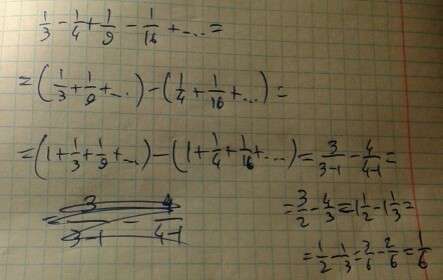 1/3 - 1/4 + 1/9 - 1/16 + ... =
= (1/3 + 1/9 + ...) - (1/4 + 1/16 + ...) =
= (1 + 1/3 + 1/9 + ...) - (1 + 1/4 + 1/16 + ...) = 3/(3-1) - 4/(4-1) =
= 3/(3-1) - 4/(4-1)
= 3/2 - 4/3 = 1 1/2 - 1 1/3 =
= 1/2 - 1/3 = 3/6 - 2/6 = 1/6